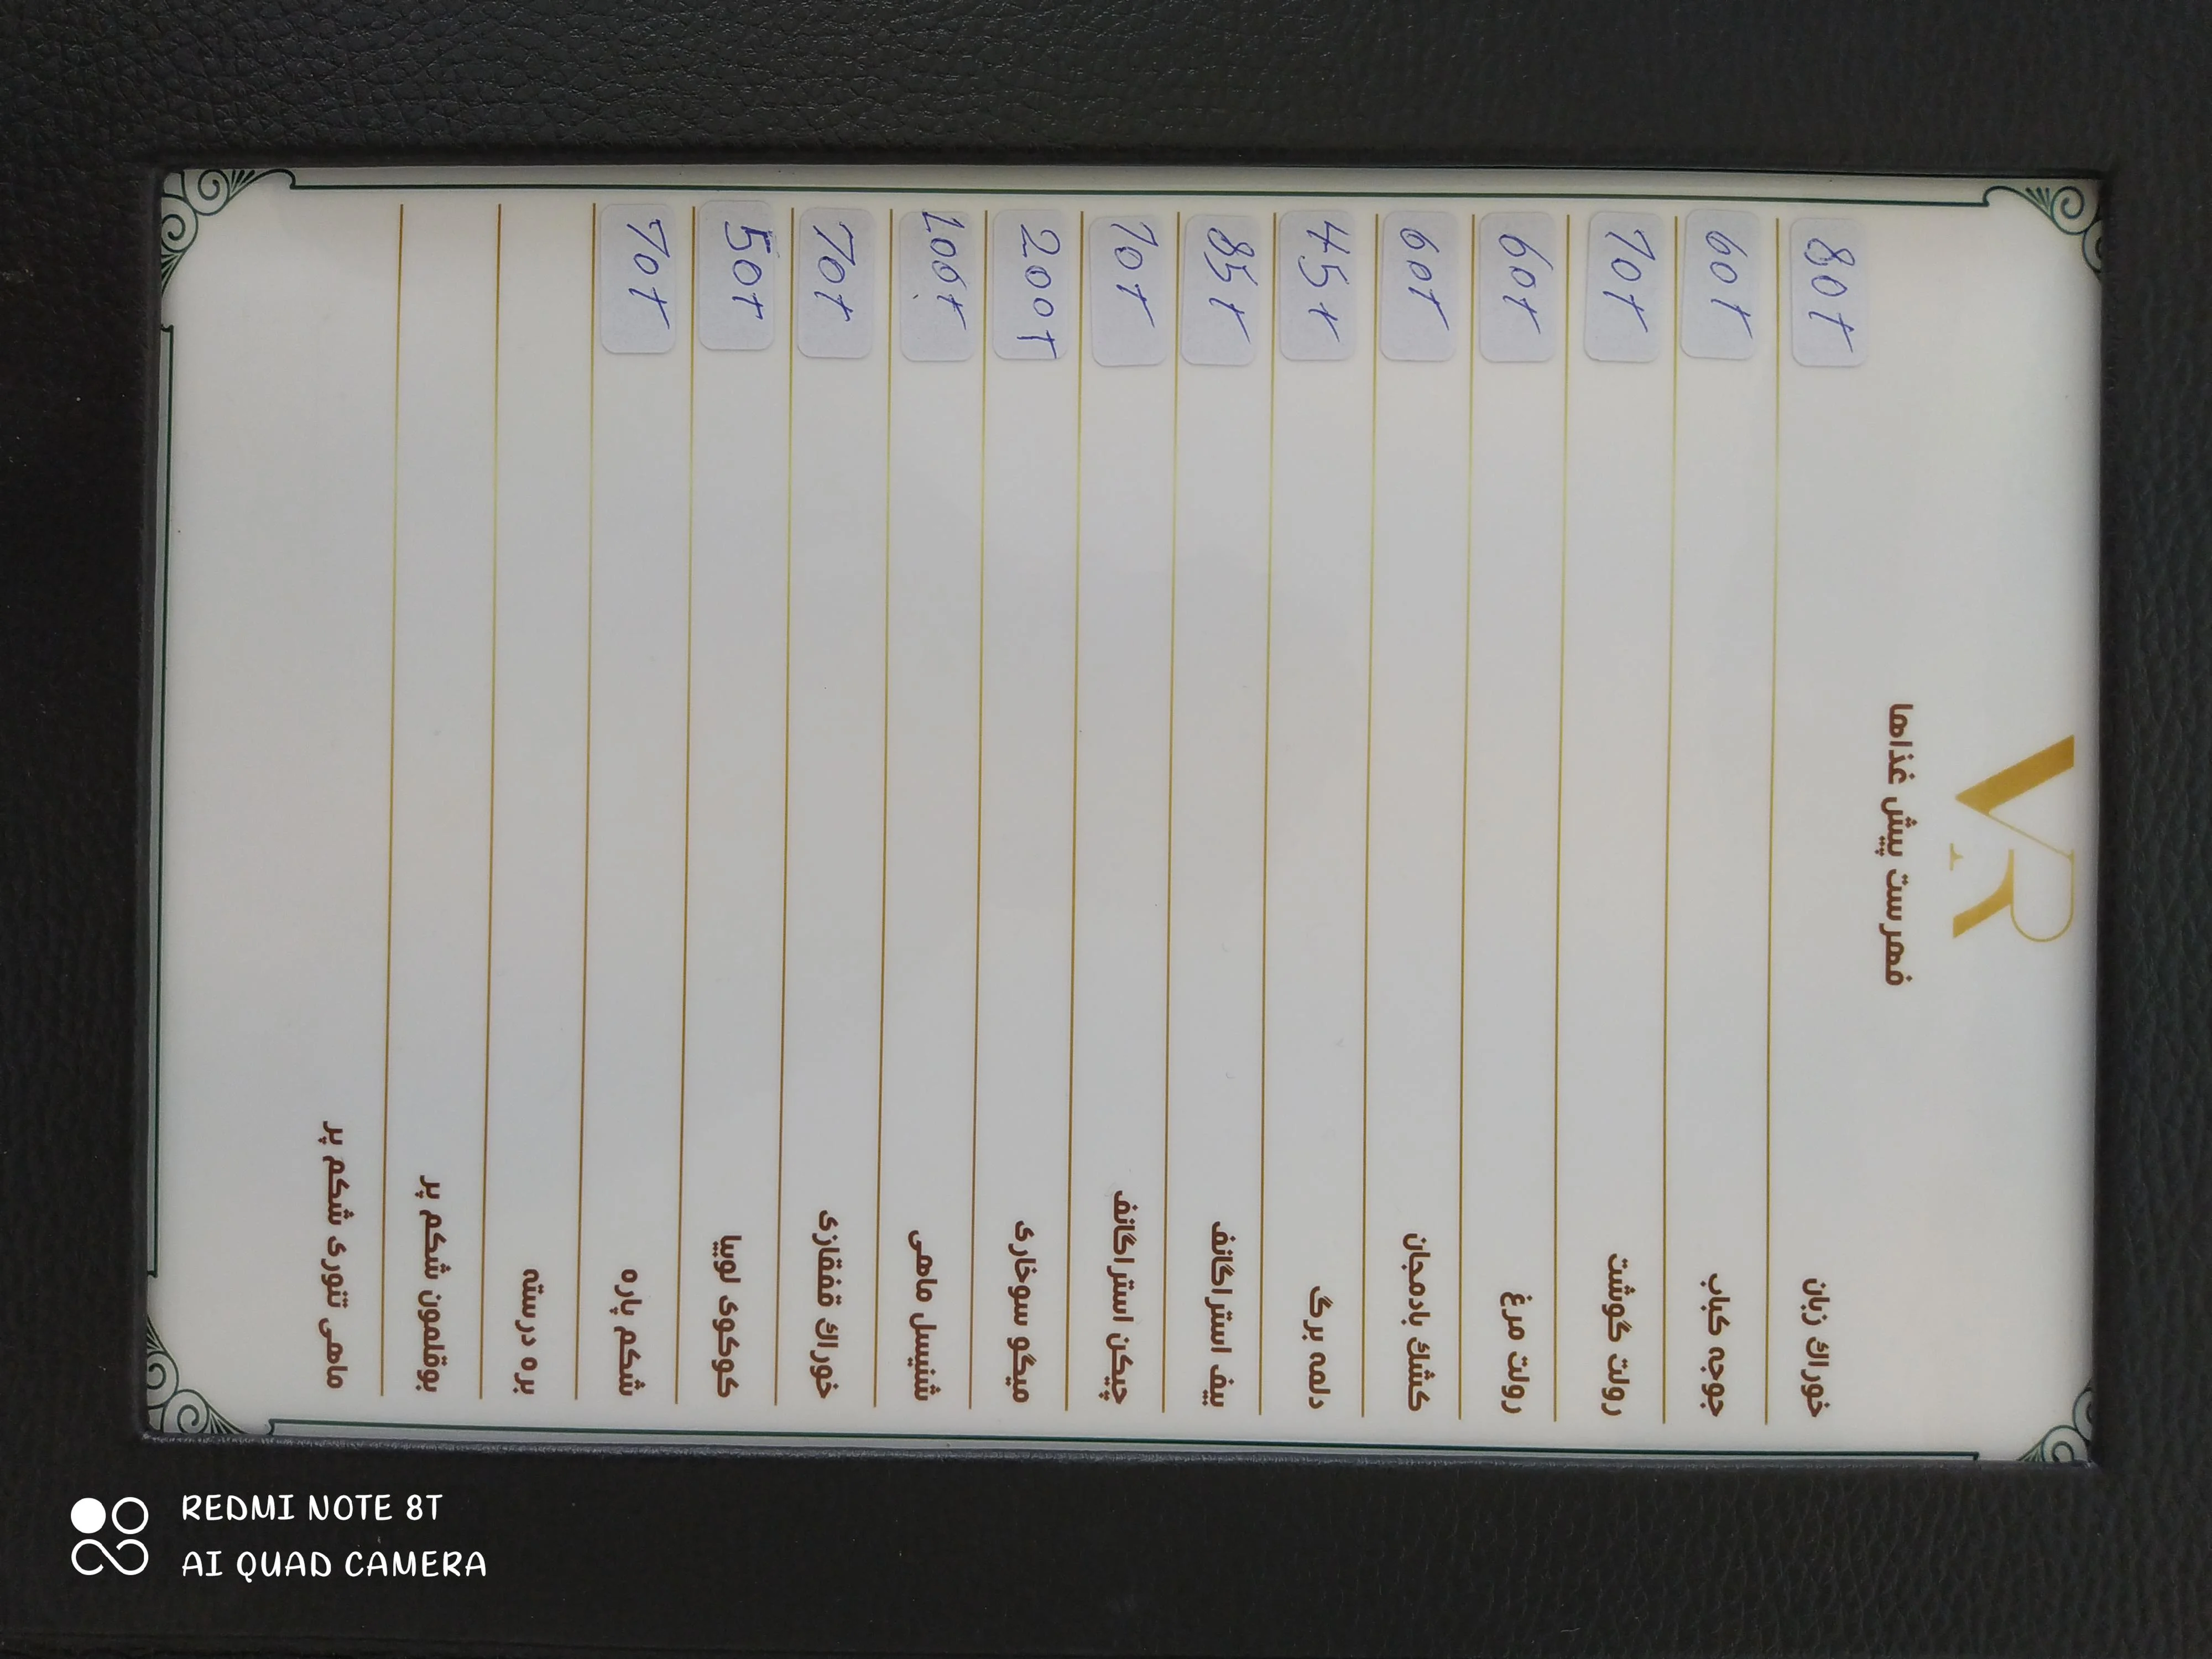 VR
فهرست پیش غذاها
خوراك زبان 80t
جوجه كباب 60t
رولت گوشت 70t
رولت مرغ 60t
كشك بادمجان 60t
دلمه برگ 45t
بیف استراگانف 85t
چیكن استراگانف 70t
میگو سوخاری 200t
شنیسل ماهی 100t
خوراك قفقازی 70t
كوكوی لوبیا 50t
شكم پاره 70t
بره درسته
بوقلمون شكم پر
ماهی تنوری شكم پر
REDMI NOTE 8T
AI QUAD CAMERA